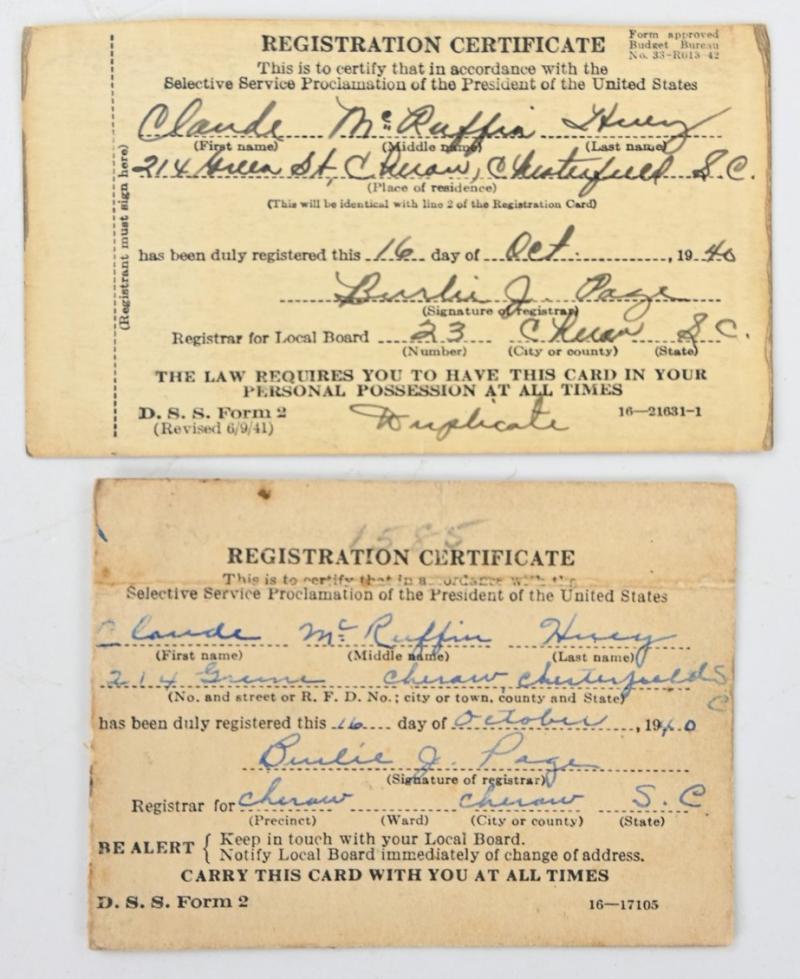 REGISTRATION CERTIFICATE
Form approved
Budget Bureau
No. 33-R013-42
This is to certify that in accordance with the
Selective Service Proclamation of the President of the United States
Claude Mc Ruffin Huey
(First name) (Middle name) (Last name)
214 Green St, Cheraw, Chesterfield S.C.
(Place of residence)
(This will be identical with line 2 of the Registration Card)
(Registrant must sign here)
has been duly registered this 16 day of Oct. , 1940
Burlie J. Page
(Signature of registrar)
Registrar for Local Board 23 Cheraw S C.
(Number) (City or county) (State)
THE LAW REQUIRES YOU TO HAVE THIS CARD IN YOUR
PERSONAL POSSESSION AT ALL TIMES
D. S. S. Form 2 Duplicate 16—21631-1
(Revised 6/9/41)
1585
REGISTRATION CERTIFICATE
This is to certify that in accordance with the
Selective Service Proclamation of the President of the United States
Claude Mc Ruffin Huey
(First name) (Middle name) (Last name)
214 Greene Cheraw, Chesterfield S C
(No. and street or R. F. D. No.; city or town, county and State)
has been duly registered this 16 day of October , 1940
Burlie J. Page
(Signature of registrar)
Registrar for Cheraw Cheraw S. C
(Precinct) (Ward) (City or county) (State)
BE ALERT { Keep in touch with your Local Board.
Notify Local Board immediately of change of address.
CARRY THIS CARD WITH YOU AT ALL TIMES
D. S. S. Form 2 16—17105